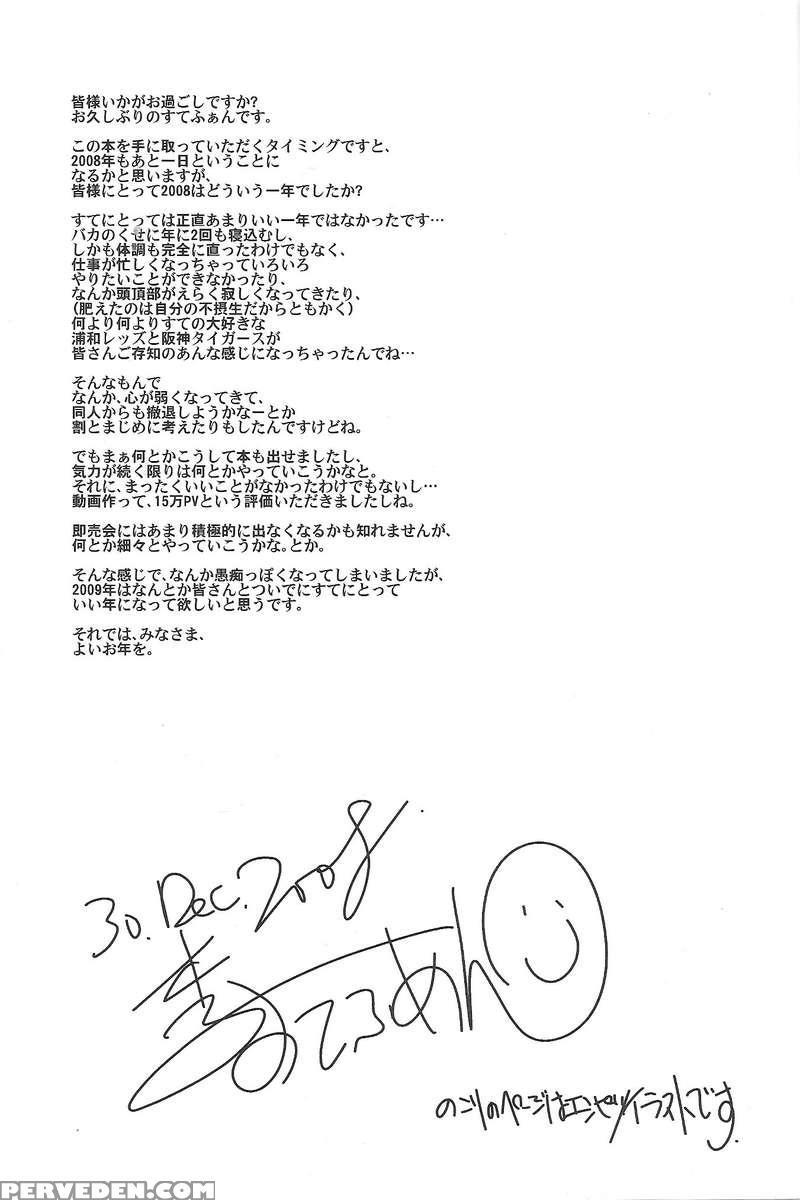 皆様いかがお過ごしですか?
お久しぶりのすてふぁんです。
この本を手に取っていただくタイミングですと、
2008年もあと一日ということに
なるかと思いますが、
皆様にとって2008はどういう一年でしたか?
すてにとっては正直あまりいい一年ではなかったです…
バカのくせに年に2回も寝込むし、
しかも体調も完全に直ったわけでもなく、
仕事が忙しくなっちゃっていろいろ
やりたいことができなかったり、
なんか頭頂部がえらく寂しくなってきたり、
(肥えたのは自分の不摂生だからともかく)
何より何よりすての大好きな
浦和レッズと阪神タイガースが
皆さんご存知のあんな感じになっちゃったんでね…
そんなもんで
なんか、心が弱くなってきて、
同人からも撤退しようかなーとか
割とまじめに考えたりもしたんですけどね。
でもまぁ何とかこうして本も出せましたし、
気力が続く限りは何とかやっていこうかなと。
それに、まったくいいことがなかったわけでもないし…
動画作って、15万PVという評価いただきましたしね。
即売会にはあまり積極的に出なくなるかも知れませんが、
何とか細々とやっていこうかな。とか。
そんな感じで、なんか愚痴っぽくなってしまいましたが、
2009年はなんとか皆さんとついでにすてにとって
いい年になって欲しいと思うです。
それでは、みなさま、
よいお年を。
30.Dec.2008.
すてふぁん
のこりのページはエンピツイラストです.
PERVEDEN.COM